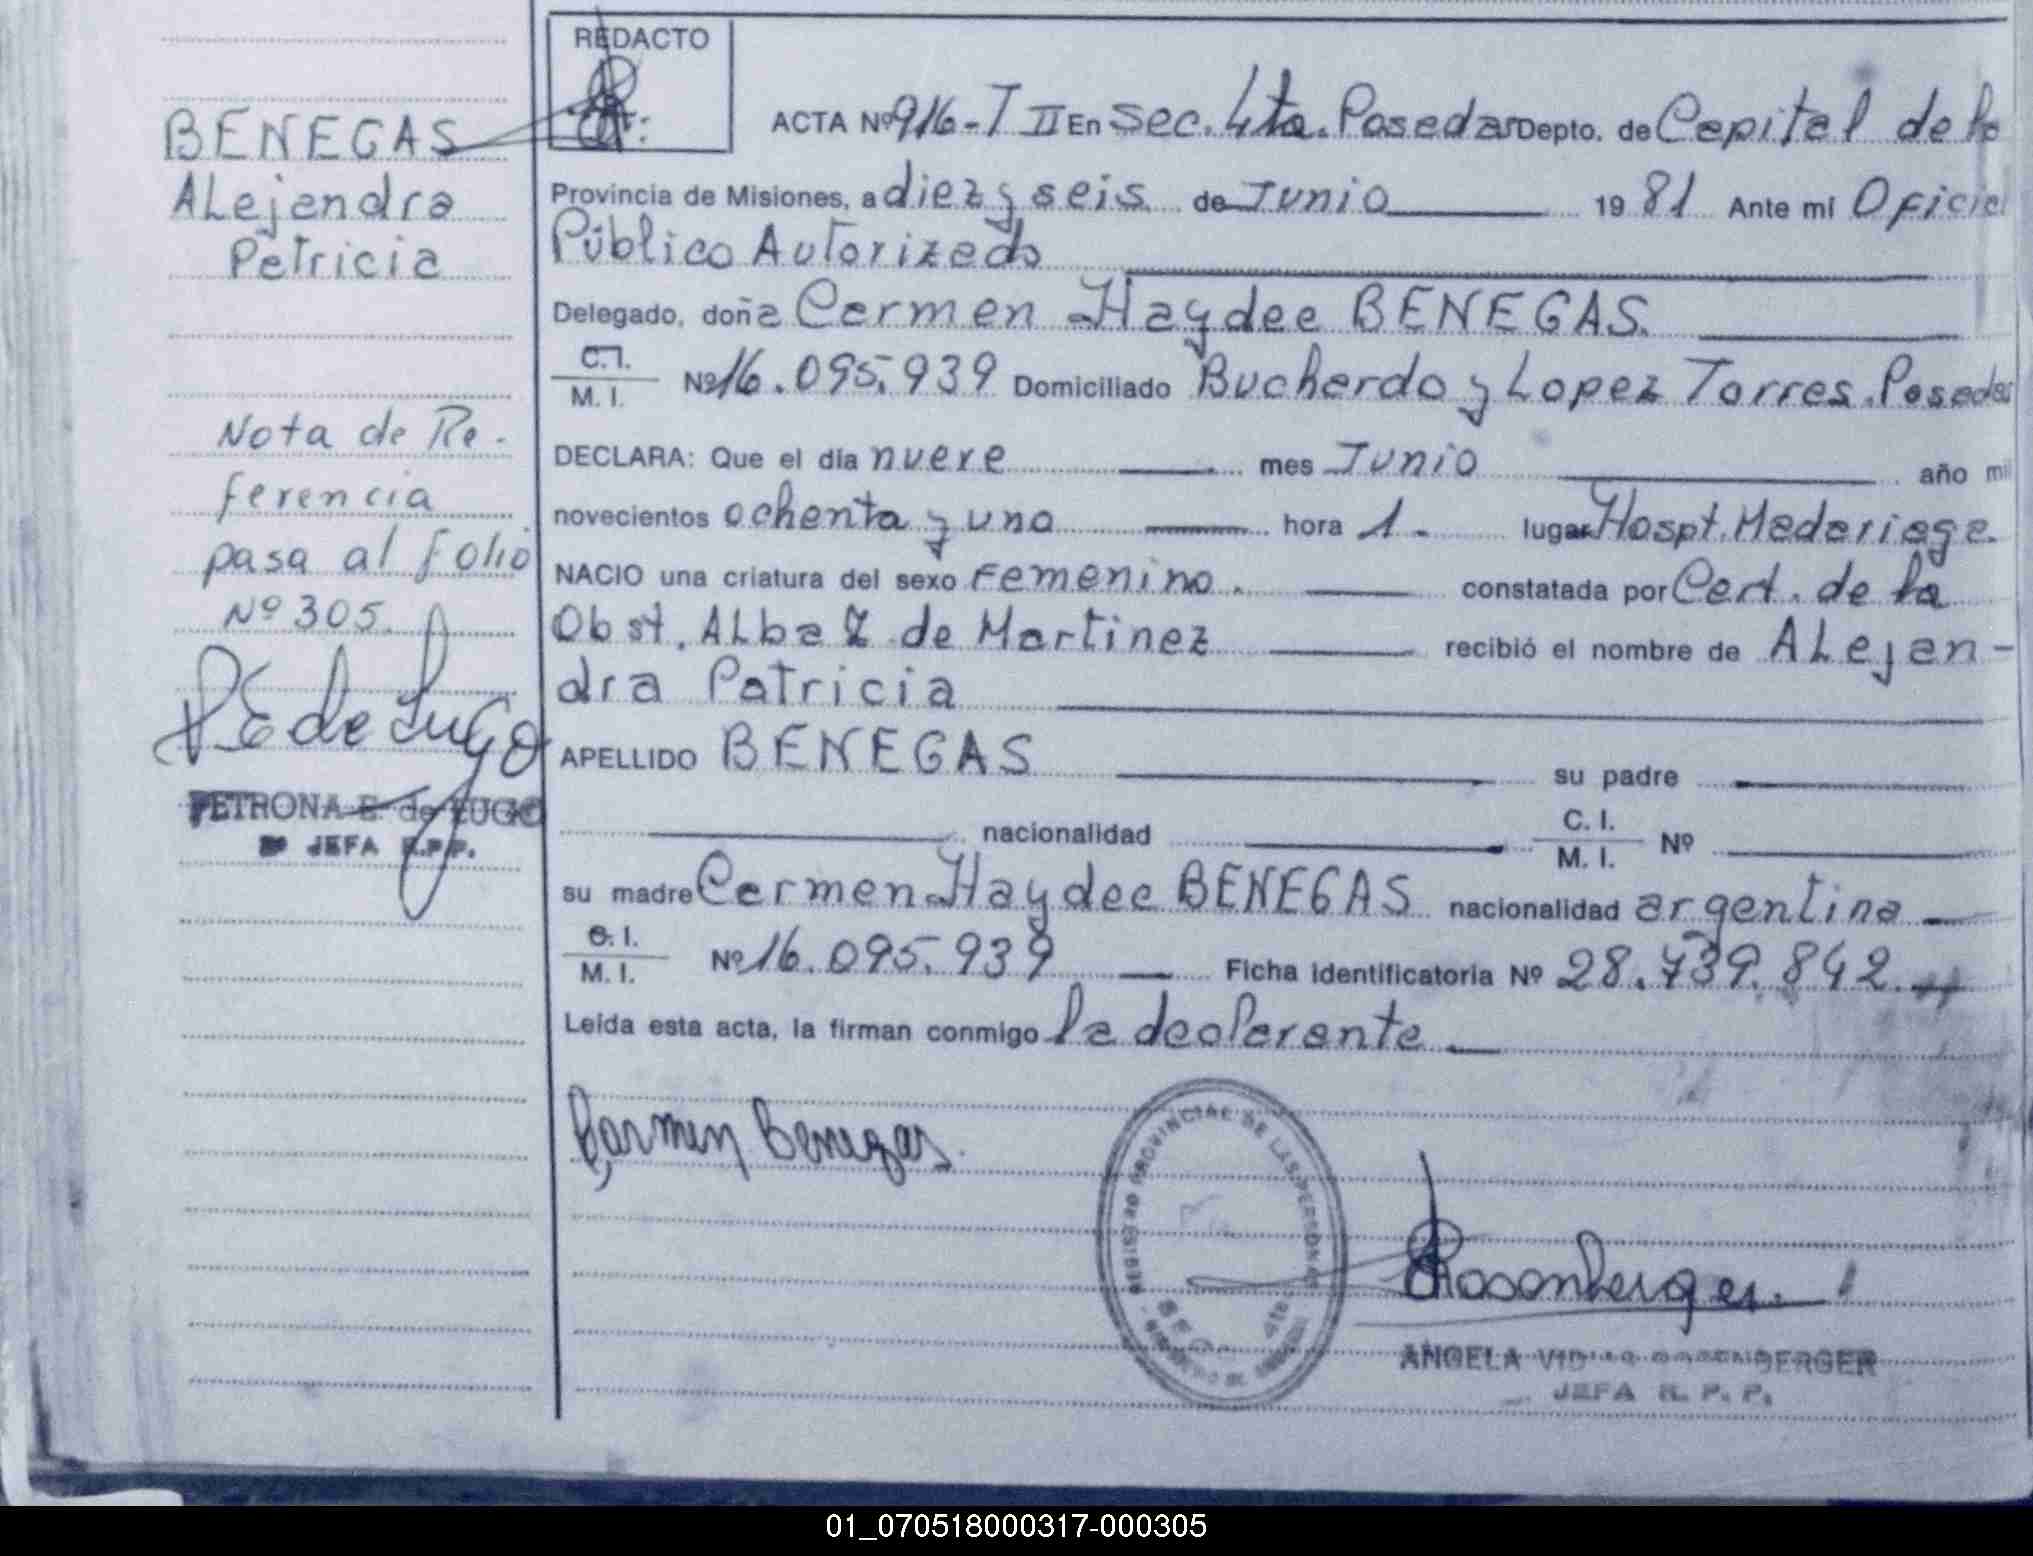 REDACTO
BENEGAS
ALejandra
Patricia
ACTA Nº 916-T II En Sec. 4ta. Posadas Depto. de Capital de la
Provincia de Misiones, a diez y seis de Junio 1981 Ante mi Oficial
Público Autorizado
Delegado, doña Carmen Haydee BENEGAS.
C.I.
M. I. Nº 16.095.939 Domiciliado Buchardo y Lopez Torres. Posadas
DECLARA: Que el día nueve mes Junio año mil
novecientos ochenta y uno hora 1. lugar Hospt. Madariaga.
NACIO una criatura del sexo Femenino. constatada por Cert. de la
Obst. ALba Z. de Martinez recibió el nombre de ALejan-
dra Patricia
APELLIDO BENEGAS su padre
nacionalidad C. I.
M. I. Nº
su madre Carmen Haydee BENEGAS nacionalidad argentina
C. I.
M. I. Nº 16.095.939 Ficha identificatoria Nº 28.739.842.
Leída esta acta, la firman conmigo la declarante
Nota de Re-
ferencia
pasa al folio
Nº 305.
PE de Lugo
PETRONA E. de LUGO
JEFA R.P.P.
Carmen Benegas.
REGISTRO PROVINCIAL DE LAS PERSONAS
SECC. 4ta
Rosenberger.
ANGELA ROSENBERGER
JEFA R. P. P.
01_070518000317-000305